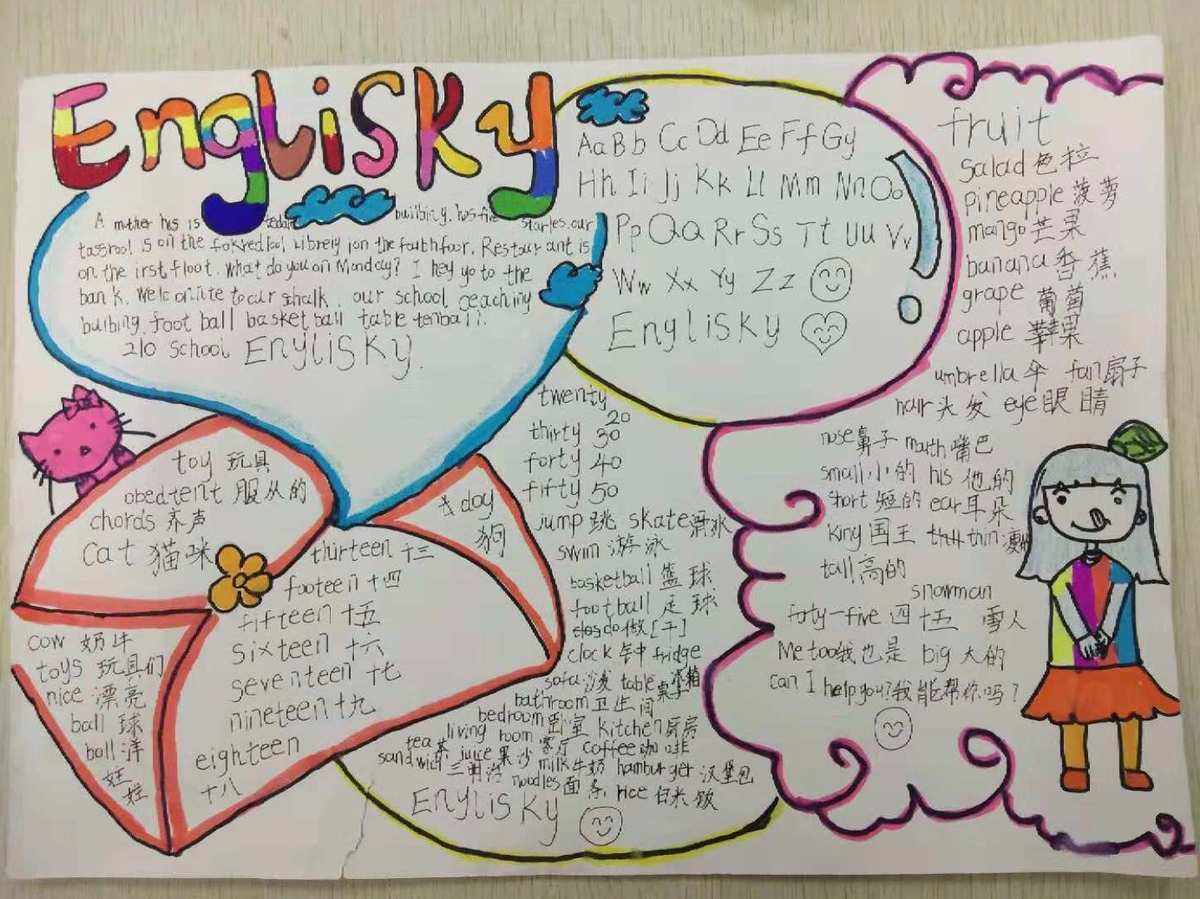 EngliSKy
A mother his is buiibing. has five starles. our
tassrool is on the fokred lool Librely ion the fourth foor. Restaur ant is
on the irst floot. what do you on Monday? I hey yo to the
ban k. our school ceaching
bulbing. foot ball basket ball table tenball.
210 school EnyliSKY.
Aa Bb Cc Dd Ee Ff Gy
Hh Ii Jj Kk Ll Mm Nn Oo
Pp Qq Rr Ss Tt Uu Vv
Ww Xx Yy Zz
EngliSKy
fruit
salad 色拉
pineapple 菠萝
mango 芒果
banana 香蕉
grape 葡萄
apple 苹果
umbrella 伞 fan 扇子
hair 头发 eye 眼睛
nose 鼻子 mouth 嘴巴
small 小的 his 他的
short 短的 ear 耳朵
King 国王 thin
tall 高的
snowman
forty-five 四十五 雪人
Me too 我也是 big 大的
can I help you? 我能帮你吗?
toy 玩具
obedtent 服从的
chords 养声
cat 猫咪
dog
狗
thirteen 十三
footeen 十四
fifteen 十五
sixteen 十六
seventeen 十七
nineteen 十九
eighteen
十八
cow 奶牛
toys 玩具们
nice 漂亮
ball 球
boll 洋
娃
娃
twenty
20
thirty 30
forty 40
fifty 50
jump 跳 skate 滑冰
swim 游泳
basketball 篮球
football 足球
do 做[干]
clock 钟 fridge
冰箱
sofa 沙发 table 桌子
bathroom 卫生间
bedroom 卧室 kitchen 厨房
living room 客厅 coffee 咖啡
tea 茶 juice 果汁 milk 牛奶 hamburger 汉堡包
sandwich 三明治 noodles 面条 rice 白米饭
EnyliSKy